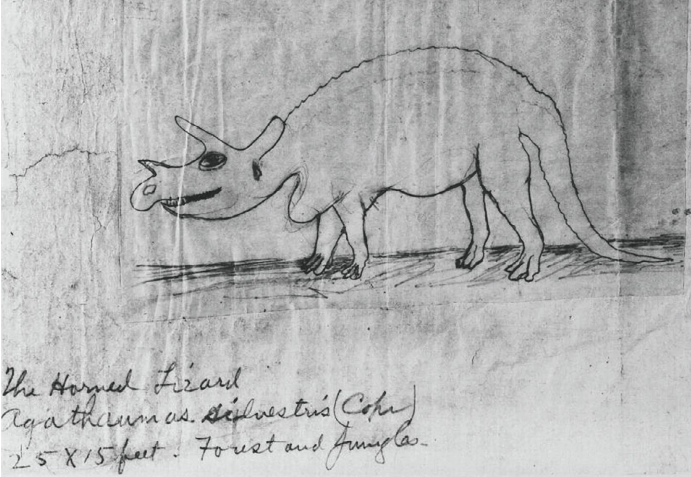 The Horned Lizard
Agathaumas silvestris (Cope)
25 X 15 feet. Forest and Jungles.